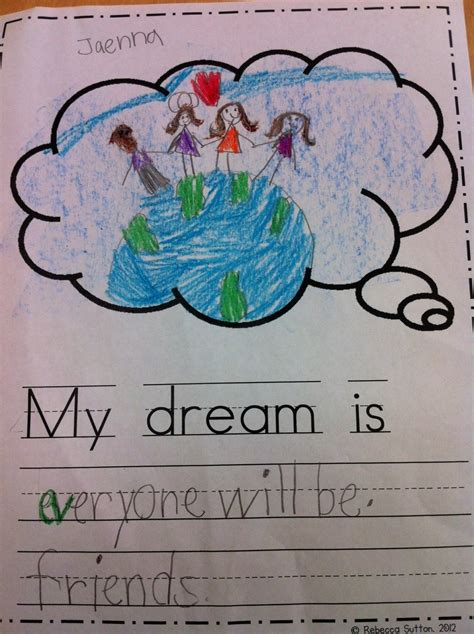 Jaenna
My dream is
everyone will be.
friends.
© Rebecca Sutton, 2012